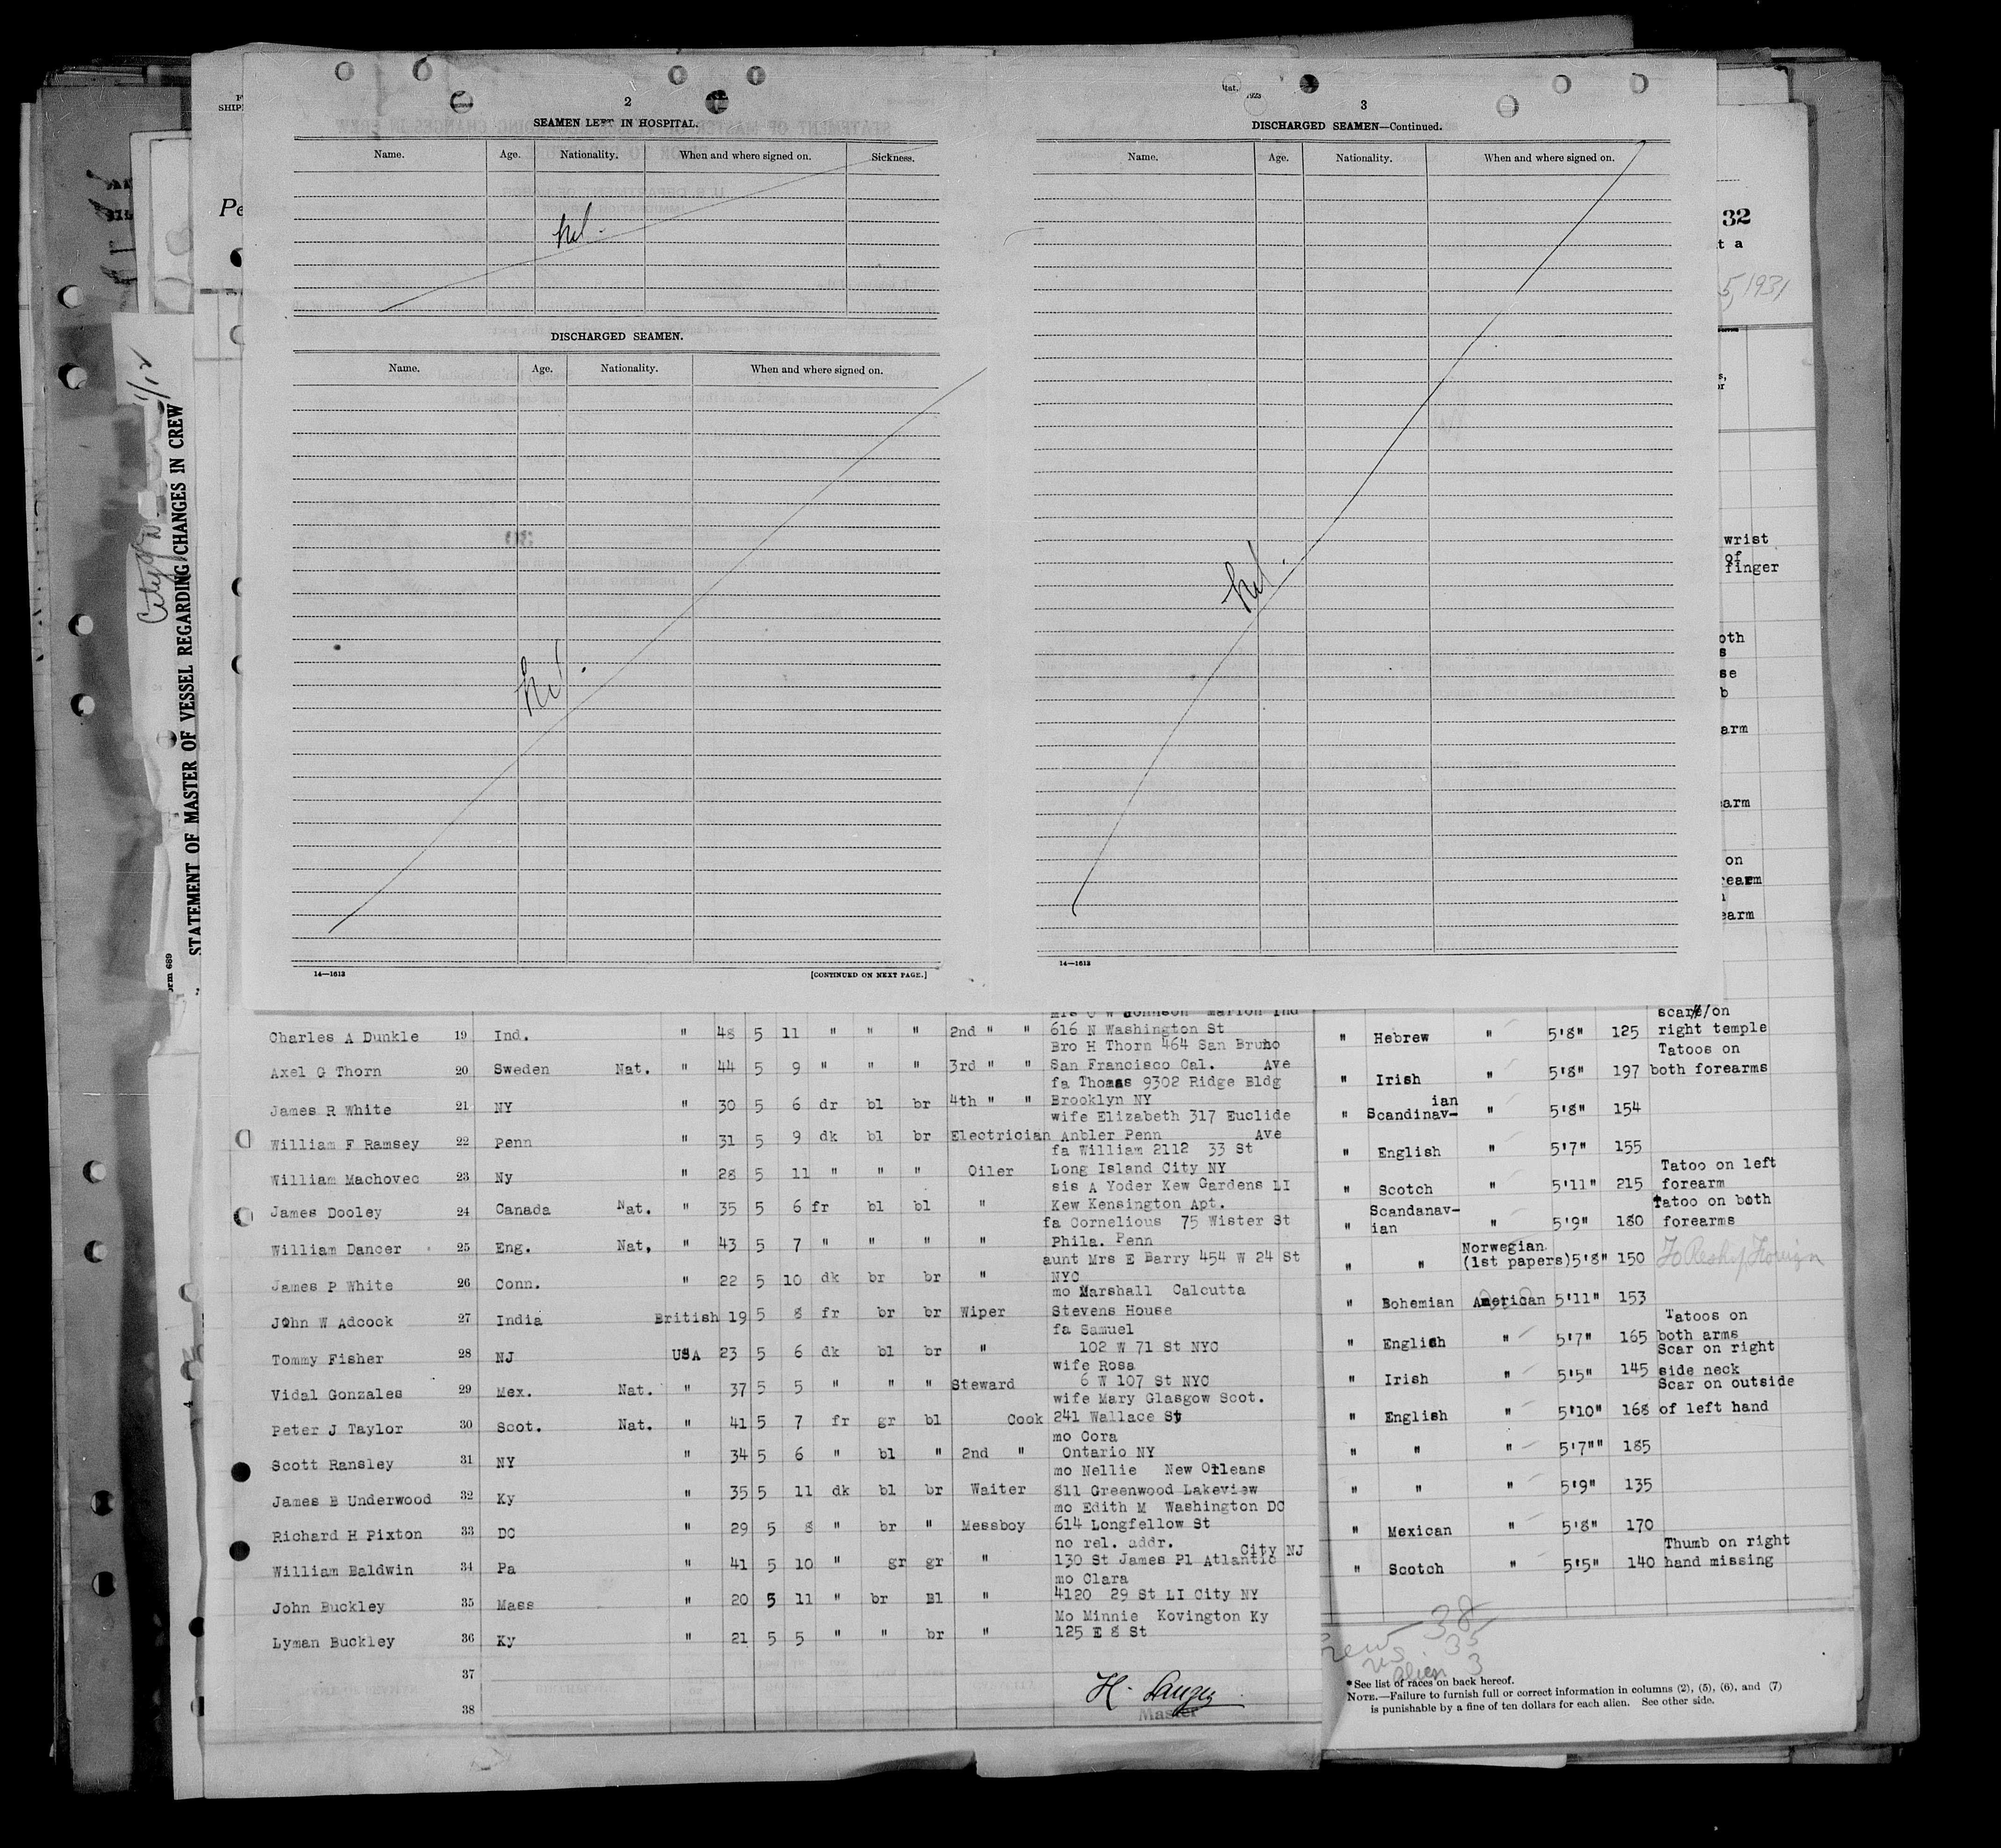 2
SEAMEN LEFT IN HOSPITAL.
Name. Age. Nationality. When and where signed on. Sickness.
nil.
DISCHARGED SEAMEN.
Name. Age. Nationality. When and where signed on.
nil.
14—1613 [CONTINUED ON NEXT PAGE.]
3
DISCHARGED SEAMEN—Continued.
Name. Age. Nationality. When and where signed on.
nil.
14—1613
STATEMENT OF MASTER OF VESSEL REGARDING CHANGES IN CREW
1/12
City of
689
Pe
32
t a
5, 1931
wrist
of
finger
oth
s
se
b
arm
arm
on
rearm
earm
616 N Washington St
Charles A Dunkle 19 Ind. " 48 5 11 " " " 2nd " "
Bro H Thorn 464 San Bruno
Axel G Thorn 20 Sweden Nat. " 44 5 9 " " " 3rd " " San Francisco Cal. Ave
fa Thomas 9302 Ridge Bldg
James R White 21 NY " 30 5 6 dr bl br 4th " " Brooklyn NY
wife Elizabeth 317 Euclide
William F Ramsey 22 Penn " 31 5 9 dk bl br Electrician Anbler Penn Ave
fa William 2112 33 St
William Machovec 23 Ny " 28 5 11 " " " Oiler Long Island City NY
sis A Yoder Kew Gardens LI
James Dooley 24 Canada Nat. " 35 5 6 fr bl bl " Kew Kensington Apt.
fa Cornelious 75 Wister St
William Dancer 25 Eng. Nat, " 43 5 7 " " " " Phila. Penn
aunt Mrs E Barry 454 W 24 St
James P White 26 Conn. " 22 5 10 dk br br " NYC
mo Marshall Calcutta
John W Adcock 27 India British 19 5 8 fr br br Wiper Stevens House
fa Samuel
Tommy Fisher 28 NJ USA 23 5 6 dk bl br " 102 W 71 St NYC
wife Rosa
Vidal Gonzales 29 Mex. Nat. " 37 5 5 " " " Steward 6 W 107 St NYC
wife Mary Glasgow Scot.
Peter J Taylor 30 Scot. Nat. " 41 5 7 fr gr bl Cook 241 Wallace St
mo Cora
Scott Ransley 31 NY " 34 5 6 " bl " 2nd " Ontario NY
mo Nellie New Orleans
James B Underwood 32 Ky " 35 5 11 dk bl br Waiter 811 Greenwood Lakeview
mo Edith M Washington DC
Richard H Pixton 33 DC " 29 5 8 " br " Messboy 614 Longfellow St
no rel. addr. City NJ
William Baldwin 34 Pa " 41 5 10 " gr gr " 130 St James Pl Atlantic
mo Clara
John Buckley 35 Mass " 20 5 11 " br Bl " 4120 29 St LI City NY
Mo Minnie Kovington Ky
Lyman Buckley 36 Ky " 21 5 5 " " br " 125 E 8 St
37
38
Master
scar/on
" Hebrew " 5'8" 125 right temple
Tatoos on
" Irish " 5'8" 197 both forearms
ian
" Scandinav- " 5'8" 154
" English " 5'7" 155
Tatoo on left
" Scotch " 5'11" 215 forearm
Scandanav- Tatoo on both
" ian " 5'9" 180 forearms
Norwegian
" " (1st papers) 5'8" 150 To Resh/Foreign
" Bohemian American 5'11" 153
Tatoos on
" English " 5'7" 165 both arms
Scar on right
" Irish " 5'5" 145 side neck
Scar on outside
" English " 5'10" 168 of left hand
" " " 5'7"" 185
" " " 5'9" 135
" Mexican " 5'8" 170
Thumb on right
" Scotch " 5'5" 140 hand missing
crew 38
us 35
alien 3
*See list of races on back hereof.
NOTE.—Failure to furnish full or correct information in columns (2), (5), (6), and (7)
is punishable by a fine of ten dollars for each alien. See other side.